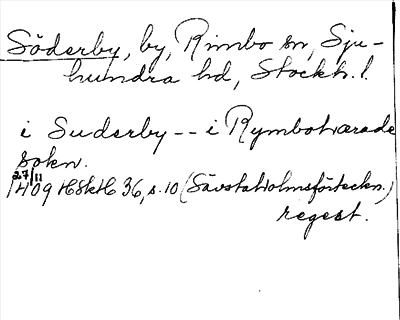 Söderby, by, Rimbo sn, Sju-
hundra hd, Stockh. l.
i Suderby -- i Rymbohærade
sokn.
27/11
1409 HSkH 36, s. 10 (Sävstaholmsförteckn.)
regest.